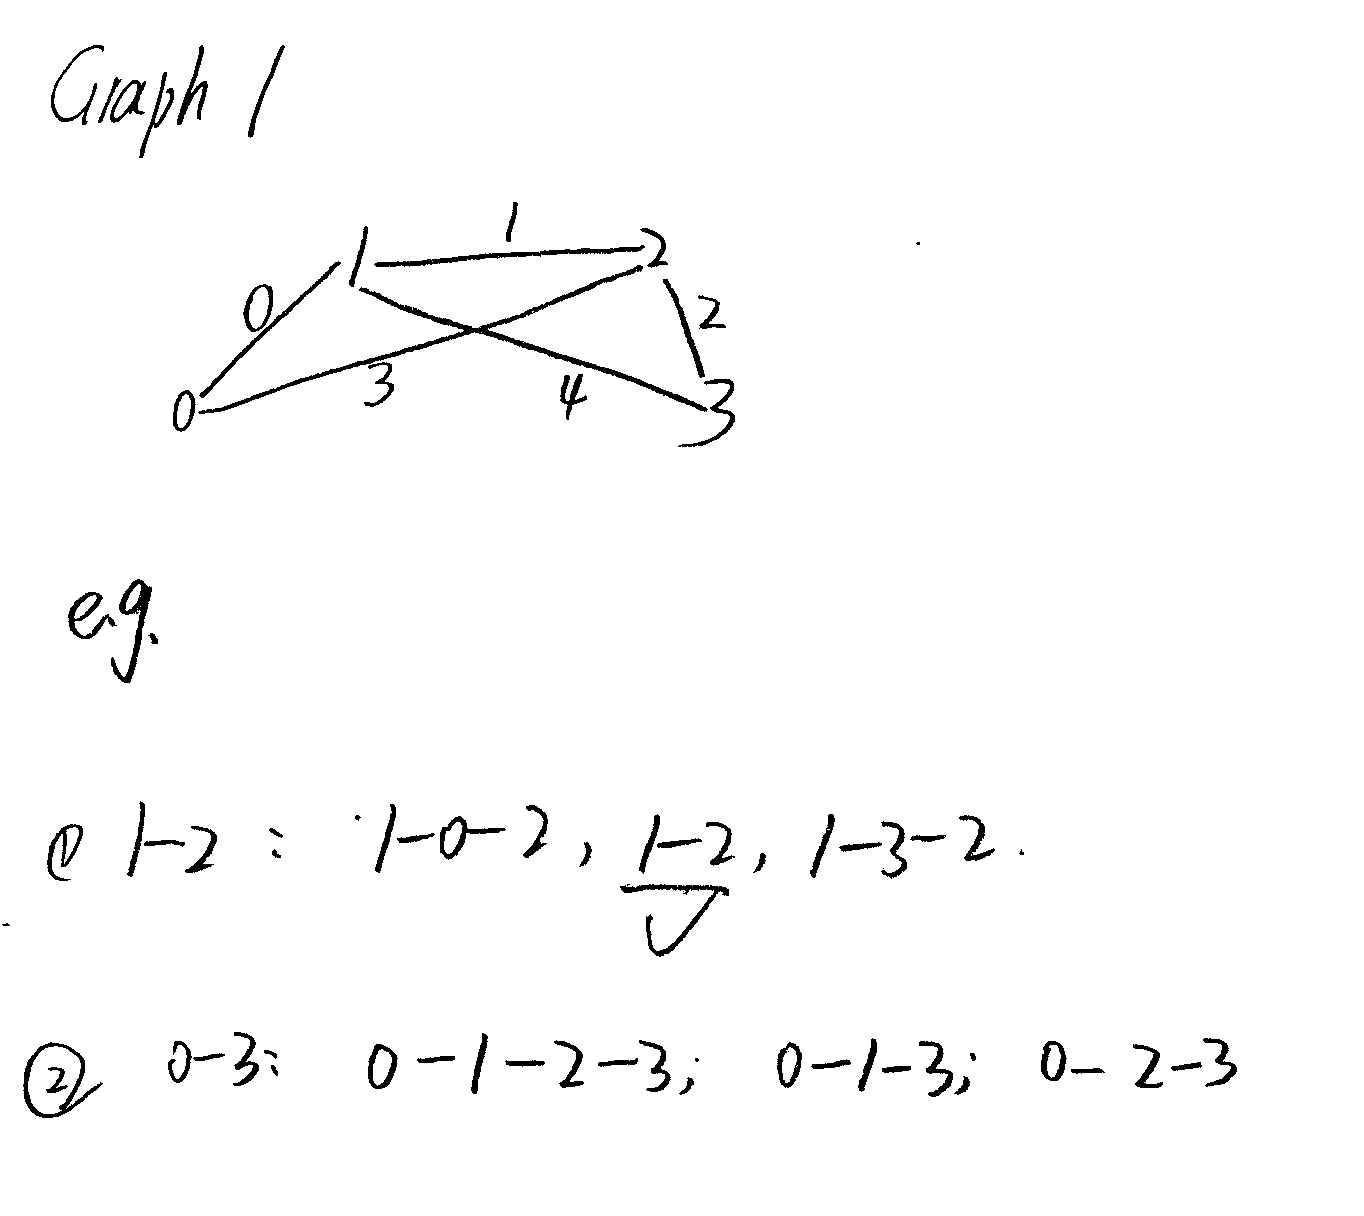 Graph 1
1
1 2
0 2
3 4
0 3
e.g.
① 1-2: 1-0-2, 1-2, 1-3-2.
② 0-3: 0-1-2-3; 0-1-3; 0-2-3